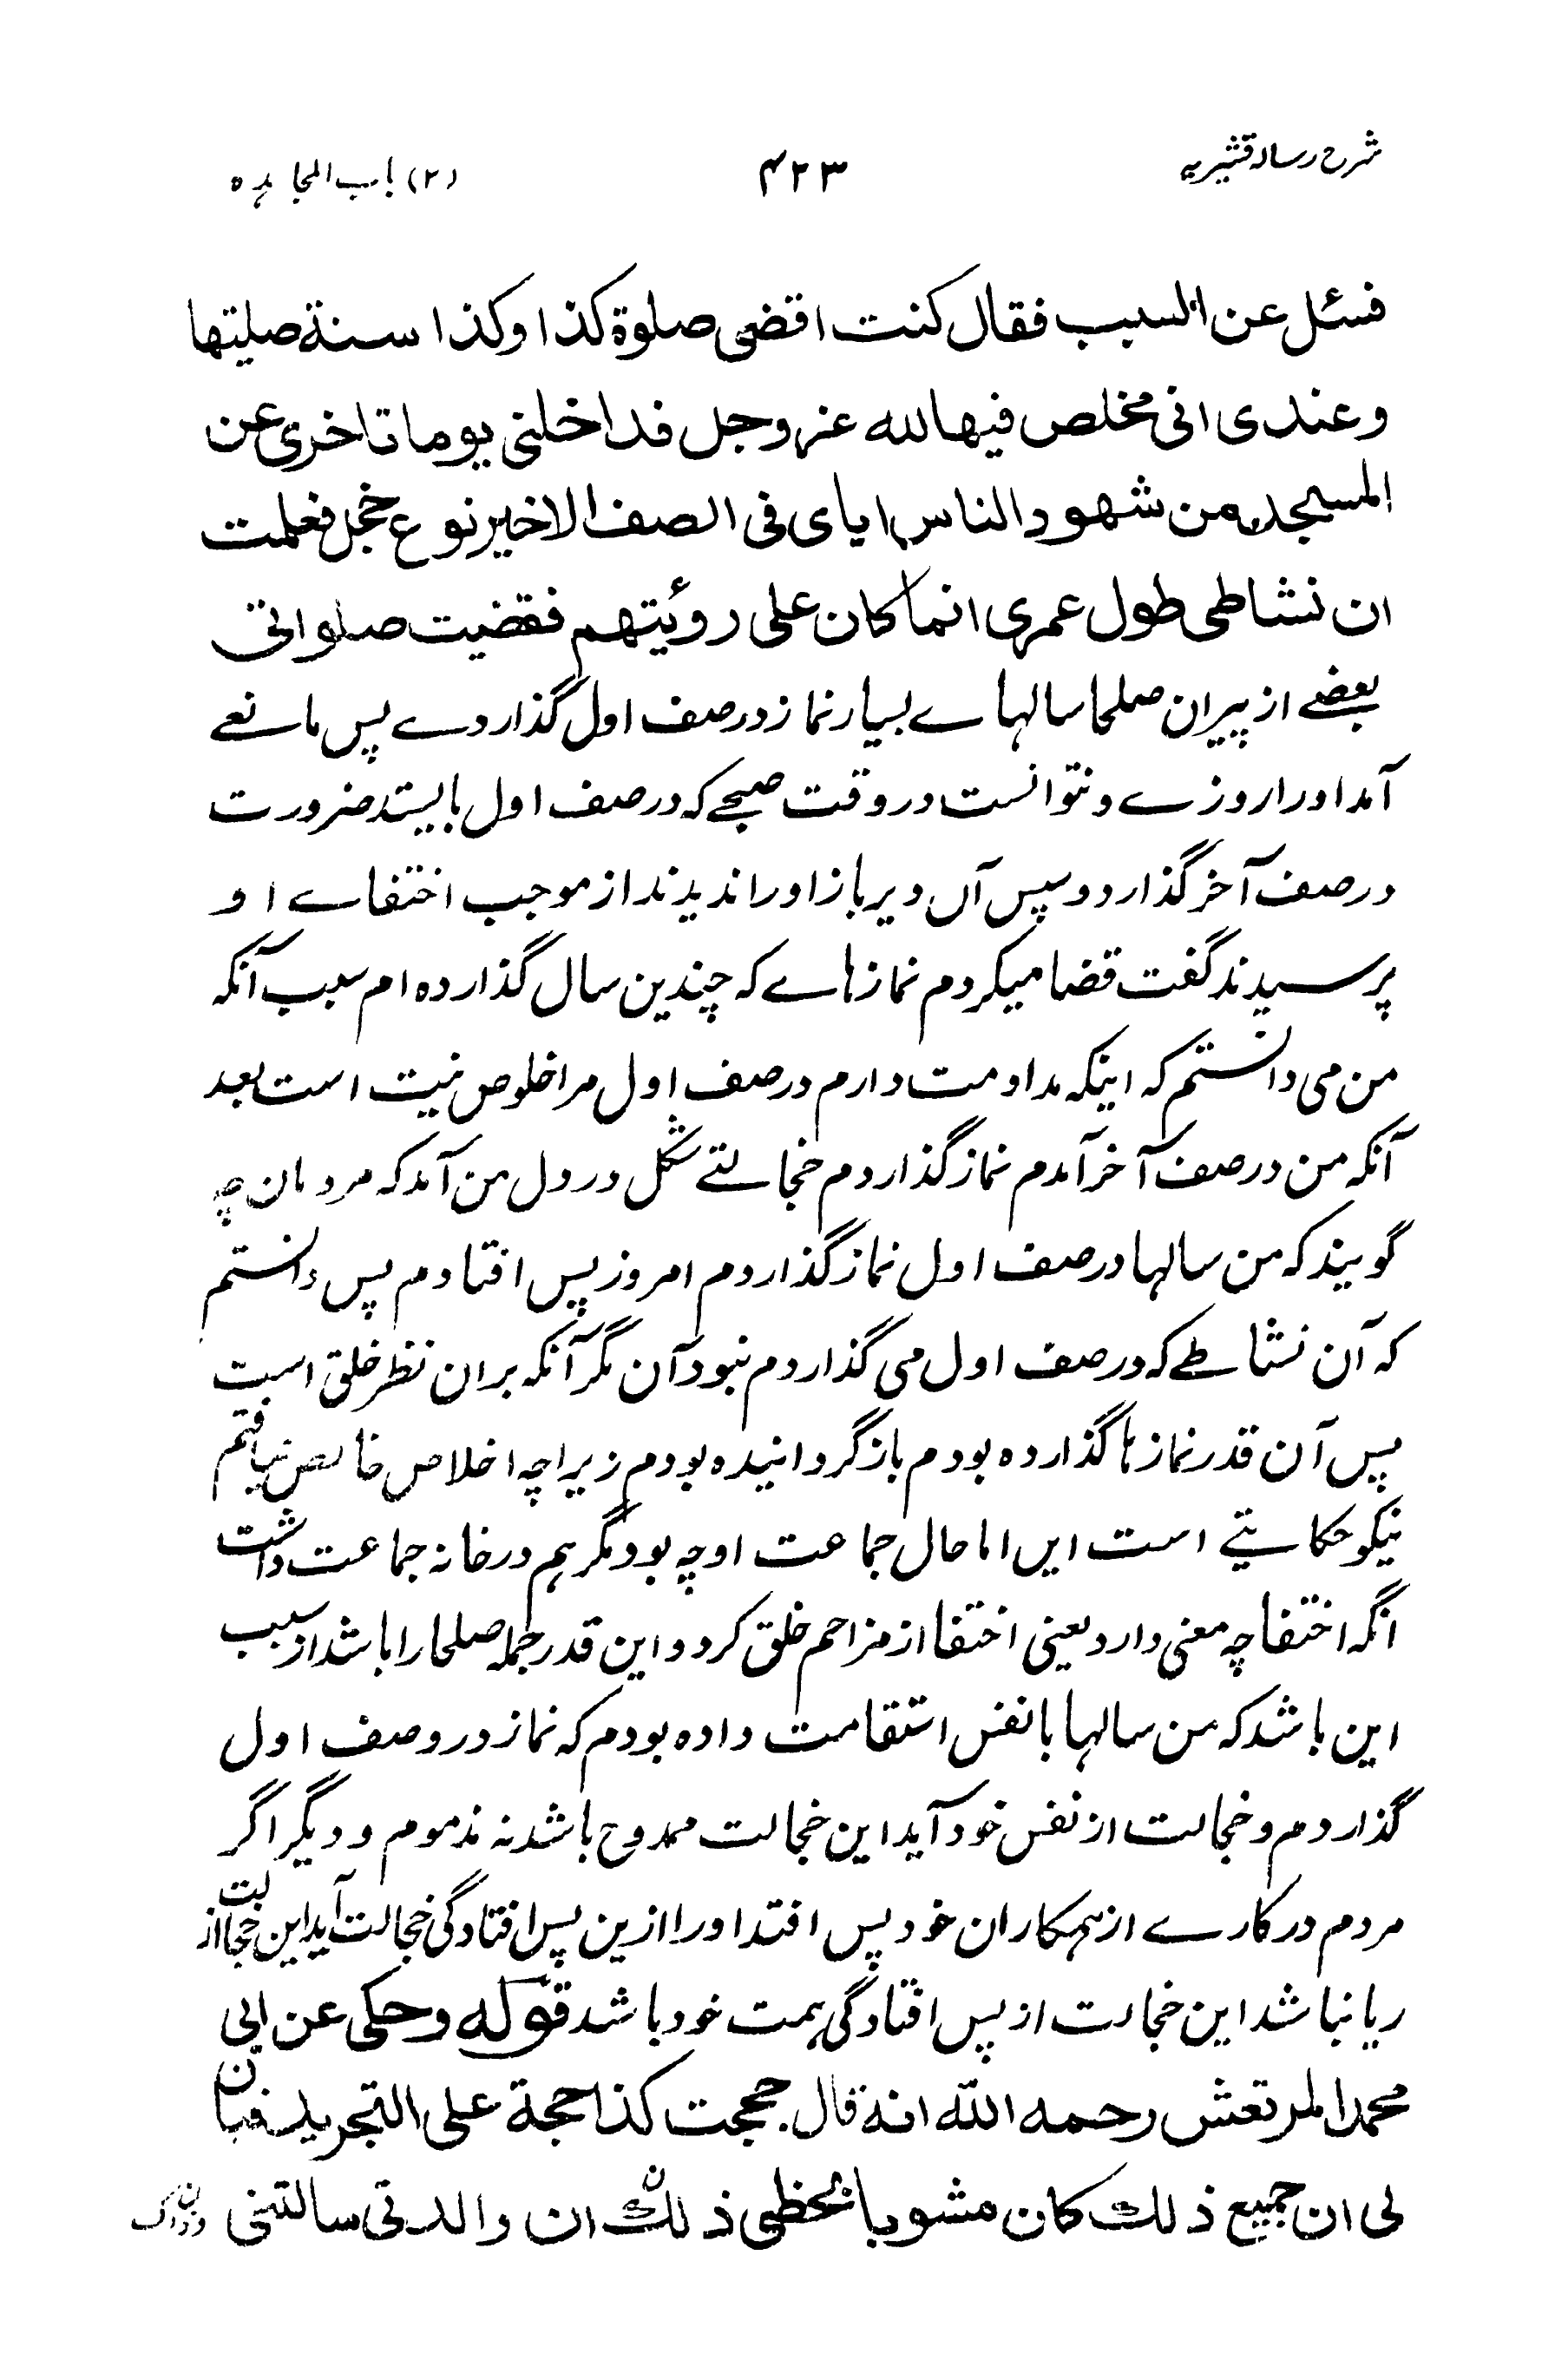 شرح رسالہ قشیریہ
۴۲۳
(۲) باب المجاہدہ
فسئل عن السبب فقال کنت اقضی صلوة کذا وکذا سنة صلیتها
وعندی انی مخلص فیها لله عز وجل فداخلنی یوما تاخری عن
المسجد من شهود الناس ایای فی الصف الاخیر نوع خجل فعلمت
ان نشاطی طول عمری انما کان علی روئیتهم فقضیت صلواتی
بعضے از پیران صلحا سالہاے بسیار نماز در صف اول گذاردے پس مانعے
آمد اورا روزے و نتوانست در وقت صبحے کہ در صف اول بایستد ضرورت
در صف آخر گذارد و سپس آں دیر باز اورا ندیدند از موجب اختفاے او
پرسیدند گفت قضا میکردم نماز ہاے کہ چندین سال گذاردہ ام سبب آنکہ
من می دانستم کہ اینکہ مداومت دارم در صف اول مرا خلوص نیت است بعد
آنکہ من در صف آخر آمدم نماز گذاردم خجالتے شکل در دل من آمد کہ مردمان چہ
گویند کہ من سالہا در صف اول نماز گذاردم امروز پس افتادم پس دانستم
کہ آن نشاطے کہ در صف اول می گذاردم نبود آن مگر آنکہ بران نظر خلق است
پس آن قدر نماز ہا گذاردہ بودم باز گردانیدہ بودم زیراچہ اخلاص خالص نیافتم
نیکو حکایتے است ایں اما حال جماعت او چہ بود مگر ہم در خانہ جماعت داشت
انگہ اختفا چہ معنی دارد یعنی اختفا از مزاحم خلق کرد و این قدر جملہ صلحا را باشد از سبب
این باشد کہ من سالہا با نفس استقامت دادہ بودم کہ نماز در و صف اول
گذاردم و خجالت از نفس خود آید این خجالت ممدوح باشد نہ مذموم و دیگر اگر
مردم در کارے از ہمکاران خود پس افتد اورا ازین پس افتادگی خجالت آید این خجالت از
ریا نباشد این خجالت از پس افتادگی ہمت خود باشد قوله وحکی عن ابی
محمد المرتعش رحمه الله انه قال حججت کذا حجة علی التجرید فبان
لی ان جمیع ذلك کان مشوبا بحظی ذلك ان والدتی سالتنی